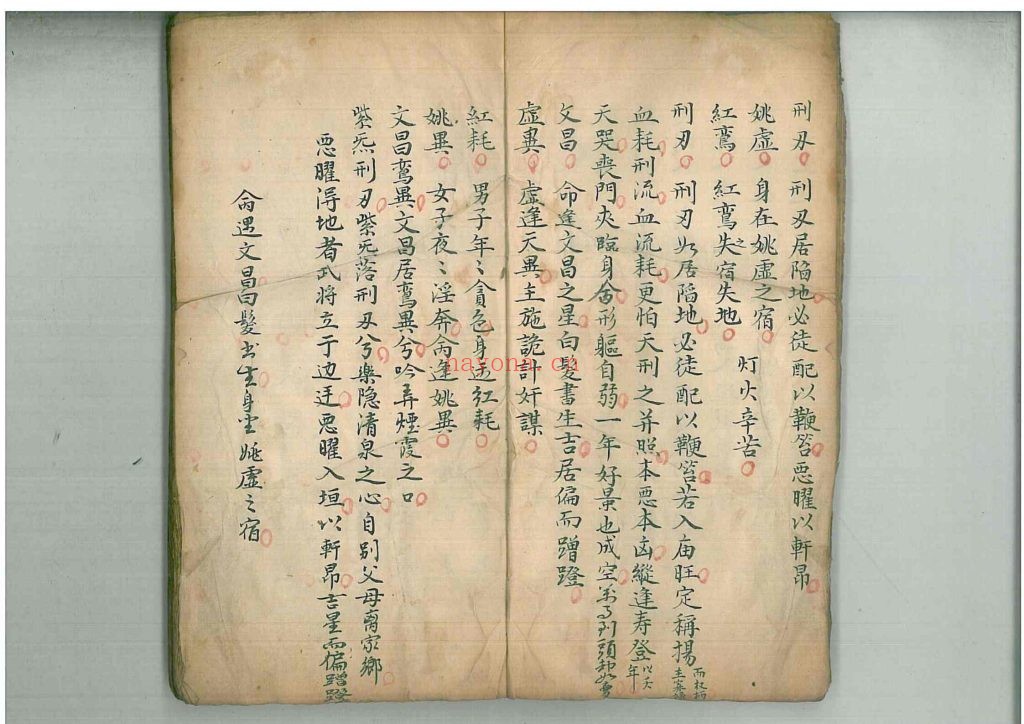 刑刃 刑刃居陷地必徒配以鞭笞恶曜以軒昂
姚虚 身在姚虚之宿 灯火辛苦
紅鸞 紅鸞失之宿失地
刑刃 刑刃如居陷地必徒配以鞭笞若入庙旺定称揚 而权柄
血耗刑流血流耗更怕天刑之并照本悪本凶縱逢寿登 以夭年
天哭喪門夾臨身舍形軀自弱一年好景也成空 到頭
文昌 命逢文昌之星白髮書生吉居偏而蹭蹬
虚異 虚逢天異主施詭計奸謀
紅耗 男子年〻貪色身逢红耗
姚異 女子夜〻淫奔命逢姚異
文昌鸞異文昌居鸞異兮吟弄煙霞之口
紫炁刑刃紫炁落刑刃兮樂隐清泉之心自别父母离家鄉
悪曜得地者武将立于边廷悪曜入垣以軒昂吉星而偏蹭蹬
命遇文昌白髮出生身坐姚虚之宿
nayona.cn